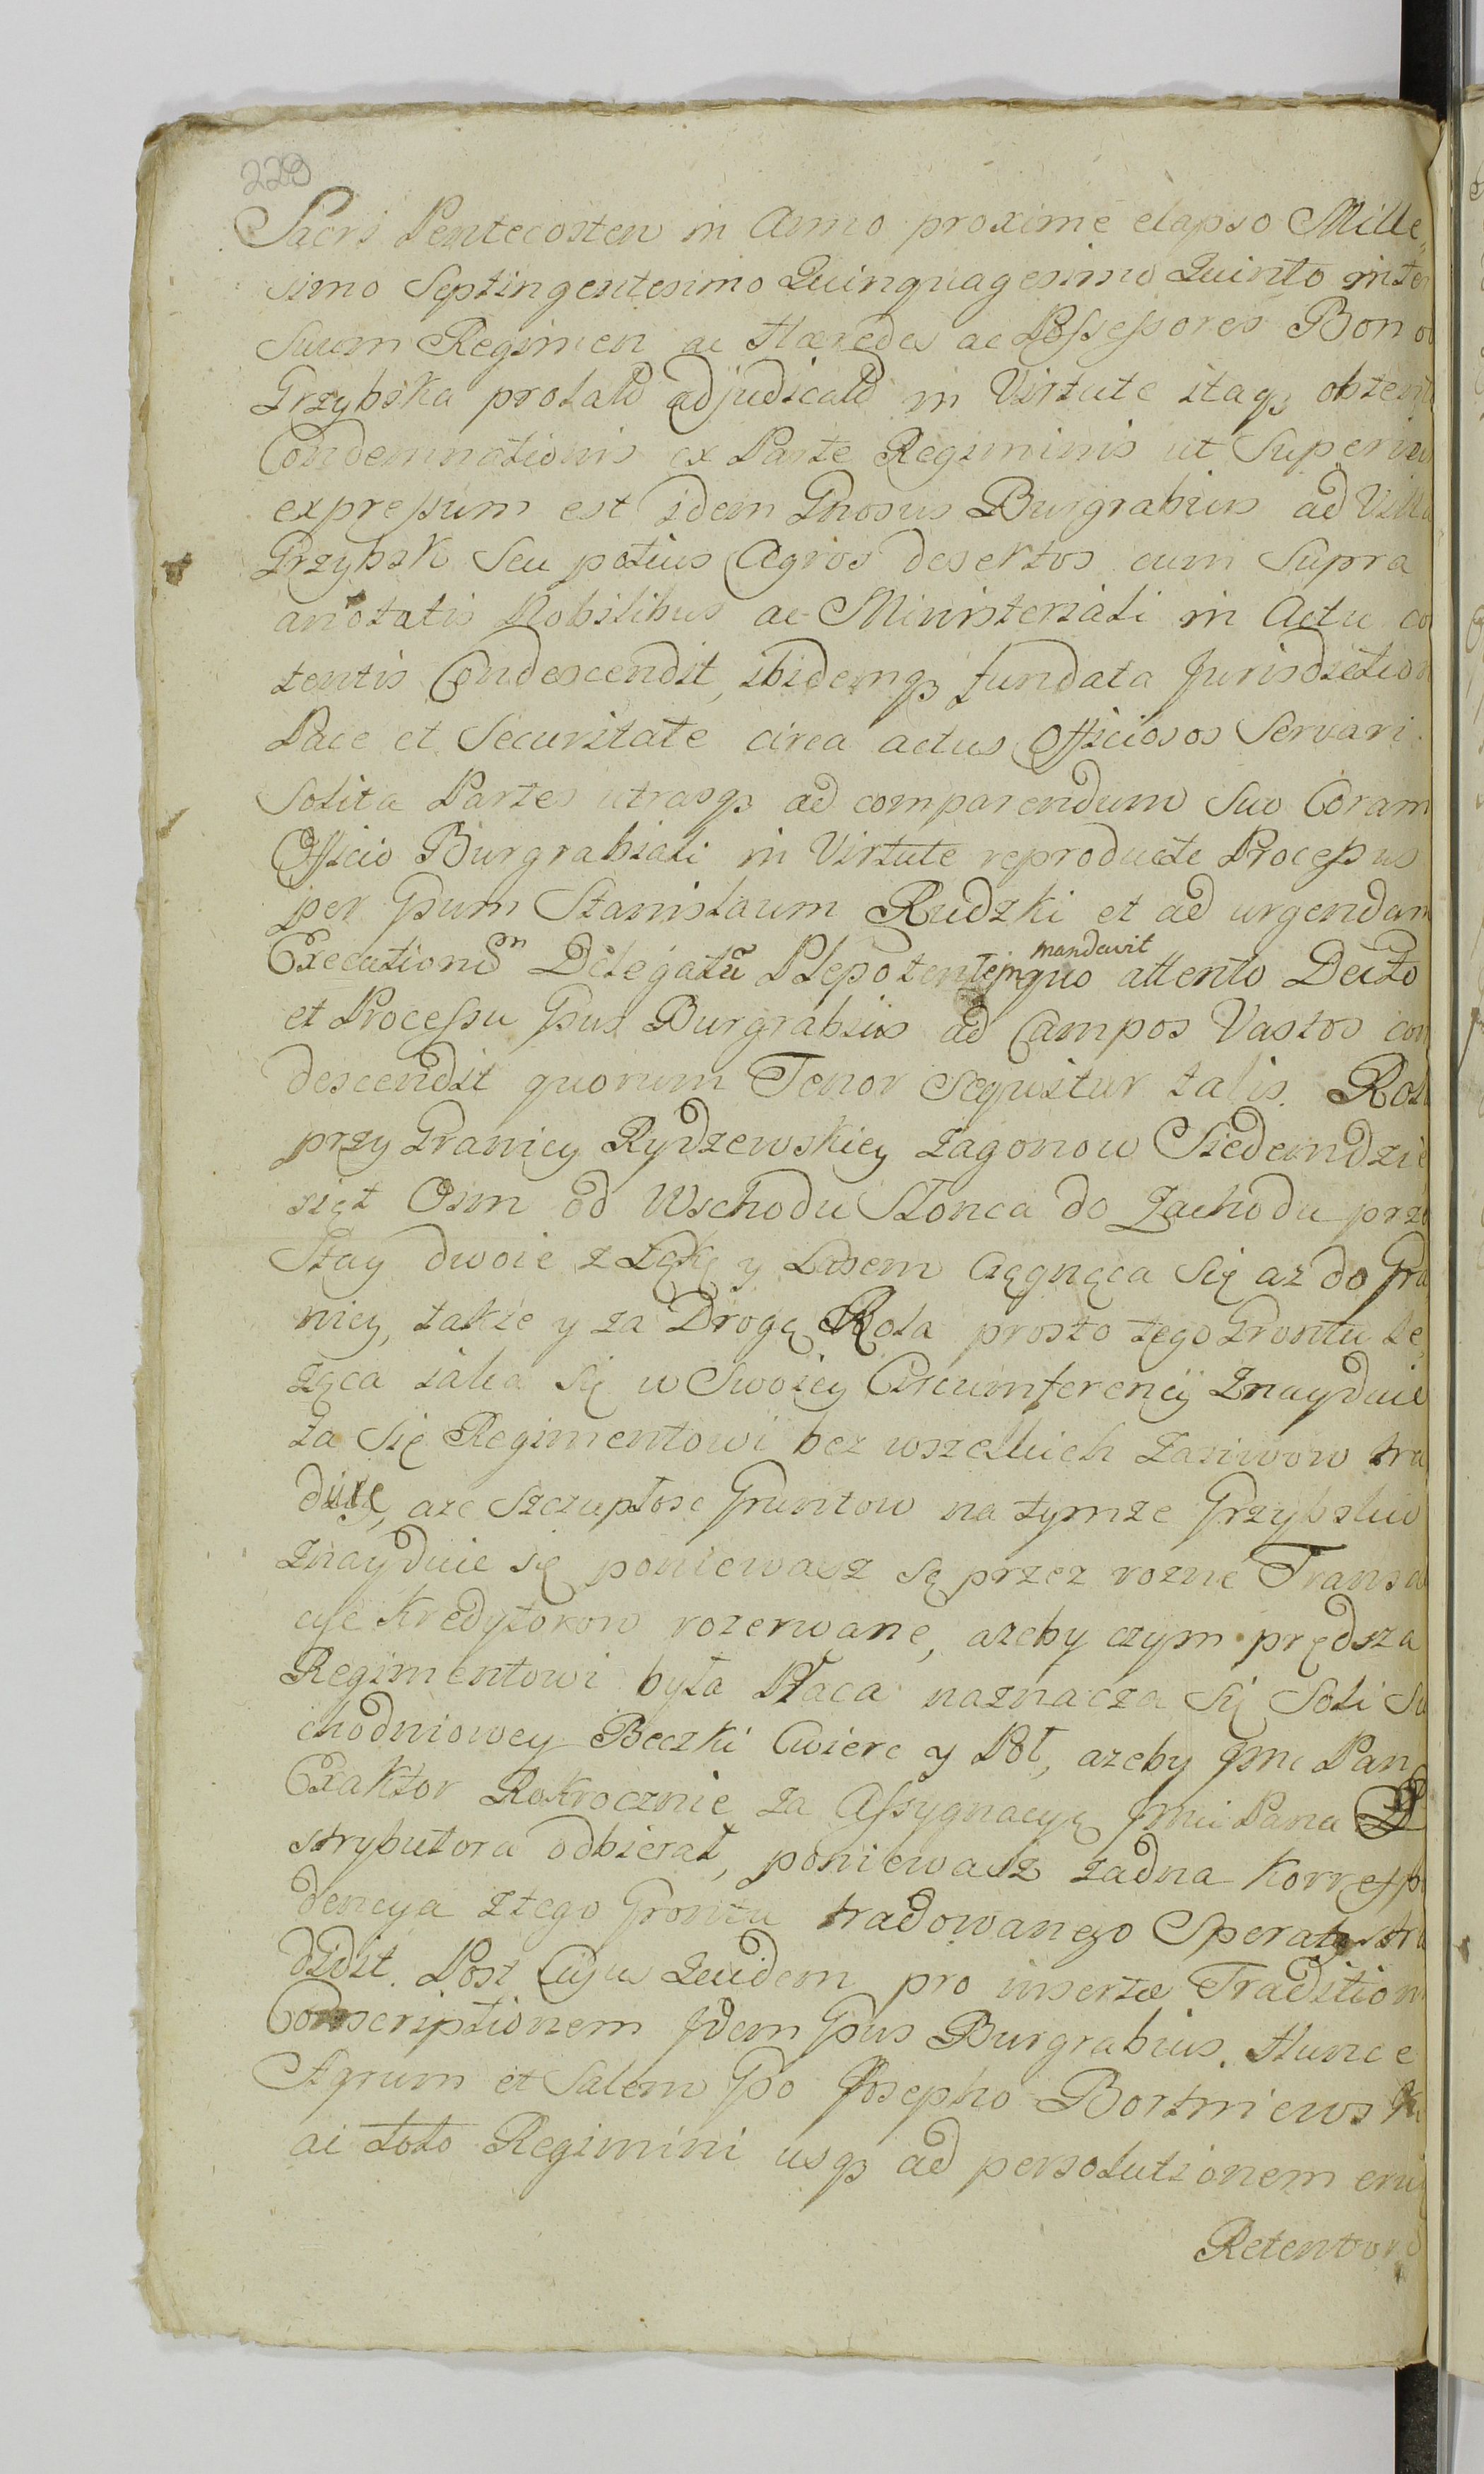 229
Sacri Pentecosten in Anno proxime elapso Mille,
simo Septingentesimo Quinquagesimo Quinto inter
Suum Regimen ac Hæredes ac Possessores Bonor
Grzybska prolato adjudicato in Virtute itaqz obtent
Condemnationis ex Parte Regiminis ut Superius
expressum est idem Gnosus Burgrabius ad Villa
Grzybsk Seu potius Agros desertos cum Supra
anotatis Nobilibus ac Ministeriali in Actu co
tentis Condescendit, ibidemqz fundata Jurisdiction
Pace et Securitate circa actus Officiosos Servari
Solita Partes utrasqz ad comparendum Suo Coram
Officio Burgrabiali in Virtute reproducte Processus
per Gsum Stanislaum Rudzki et ad urgendam
Executionem Delegatũ Plepotentem mandavit quo attento Decto
et Processu Gsus Burgrabius ad Campos Vastos con
descendit quorum Tenor sequitur talis. Rola
przy Granicy Rydzewskiey Zagonow Siedemdzie
siąt Osm od Wschodu Słonca do Zachodu prze
Stay dwoie z Łąką y Lasem Ciągnąca Się az do Gra
nicy, takze y za Drogą Rola prosto tego Grontu le,
ząca iaka się w Swoiey Circumferencij Znayduie
ta Się Regimentowi bez wszelkich Zasiwow tra
duie, aze Szczupłosc Gruntow na tymze Grzybsku
Znayduie się poniewasz są przez rozne Transa
cye Kredytorow rozerwane, azeby czym prędsza
Regimentowi była Płaca naznacza Się Soli Su
chodniowey Beczki Cwierc y Poł, azeby Jmc Pan
Exaktor Rokrocznie za Assygnacyą Jmci Pana D
strybutora odbierał, poniewasz zadna Korrespo
dencya z tego Grontu tradowanego Speratur tra
didit. Post Cujus Quidem pro inserta Tradition
Conscriptionem Idem Gsus Burgrabius. Hunce
Agrum et Salem Gso Josepho Bortniewski
ac toto Regimini usqz ad persolutionem
Retentor